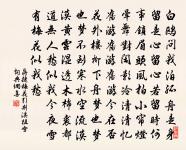 白鷗問我泊孤舟是身
留是心留心若留時何
事鎖眉頭風拍小簾燈
暈舞對閒影冷清清憶
舊游舊游舊游今在否
花外樓柳下舟夢也夢
也夢不到寒水空流漠
漠黃雲濕透木棉裘都
道無人愁似我今夜雪
有梅花似我愁
蔣捷梅花引荊溪阻雪